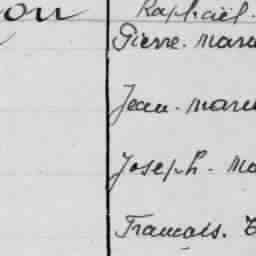 on Raphaël.
Pierre. Marie
Jean. Marie
Joseph. Ma
Francois. E